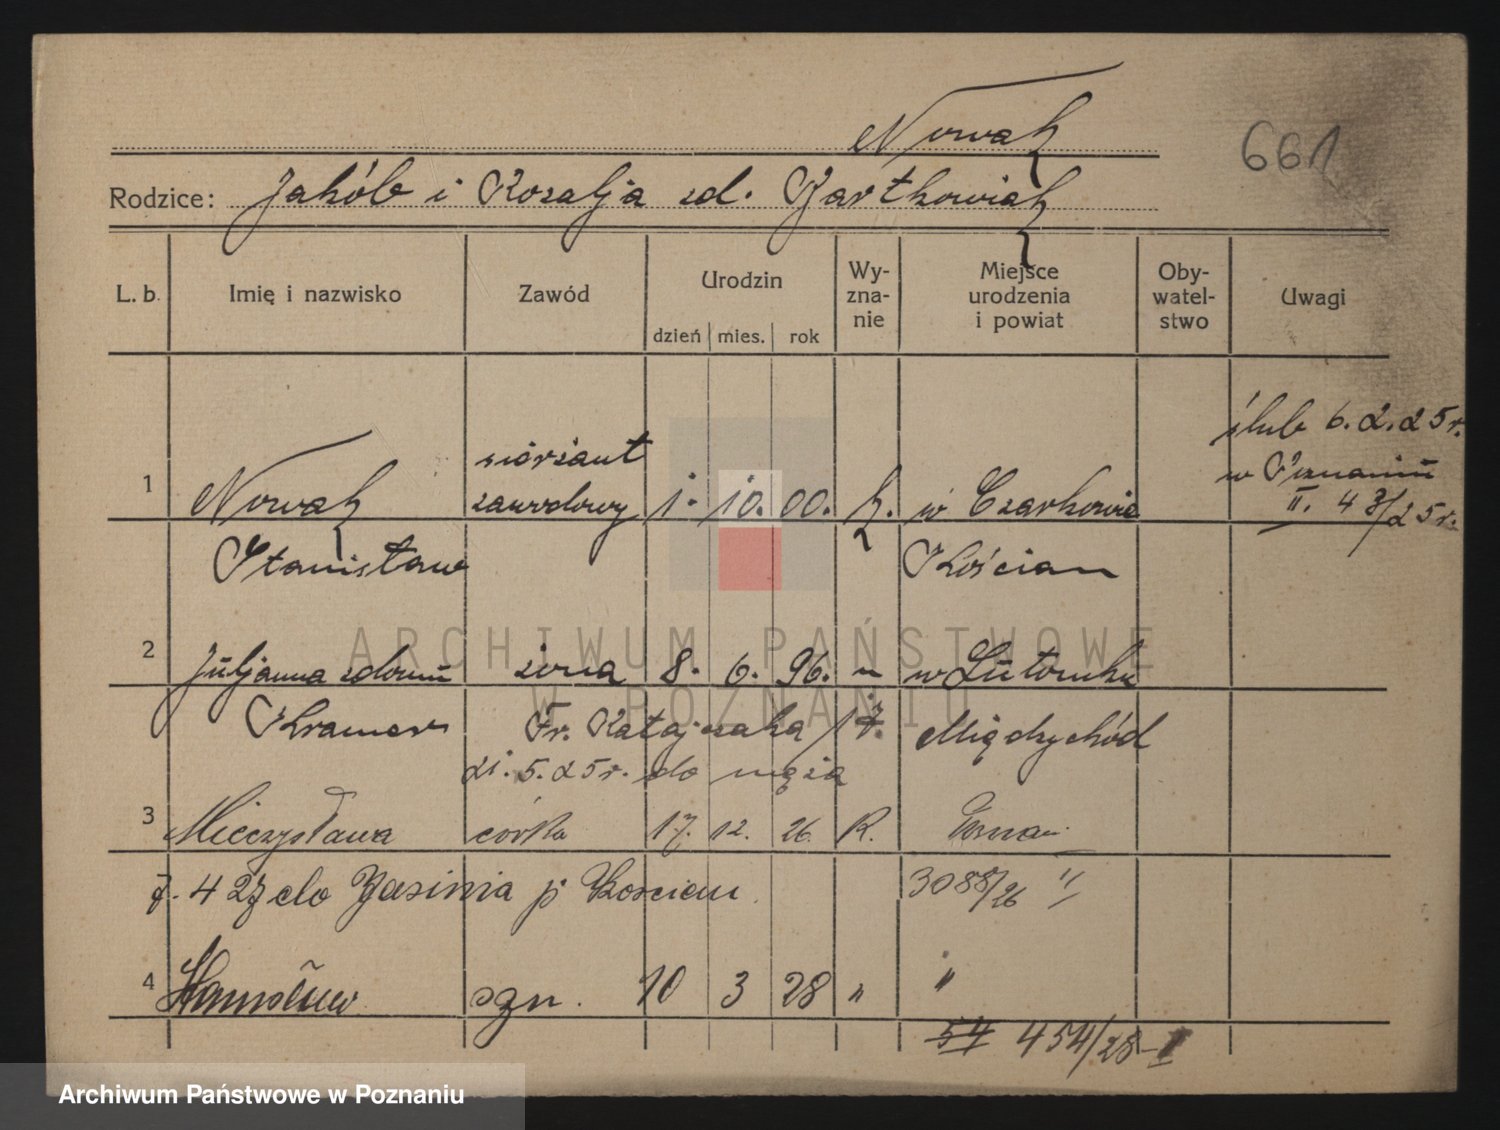 Nowak
661
Rodzice: Jakób i Rozalja zd. Bartkowiak
L. b. Imię i nazwisko Zawód Urodzin dzień mies. rok Wy-zna-nie Miejsce urodzenia i powiat Oby-watel-stwo Uwagi
ślub 6. 2. 25 r.
sierżant
w Poznaniu
1 Nowak zawodowy 1. 10. 00. k. w Czarkowie
II. 43/25 r.
Stanisław Kościan
ARCHIWUM PAŃSTWOWE
2 Juljanna zdomu żona 8. 6. 96. " w Lutomku
W POZNANIU
Kramer Fr. Ratajczaka 17. Międzychód
21. 5. 25 r. do męża
3 Mieczysława córka 17. 12. 26. R. Pozna
7. 4 27 do Jasinia p. Kościan 3088/26 II
4 syn. 10 3 28 " "
54 454/28 I
Archiwum Państwowe w Poznaniu